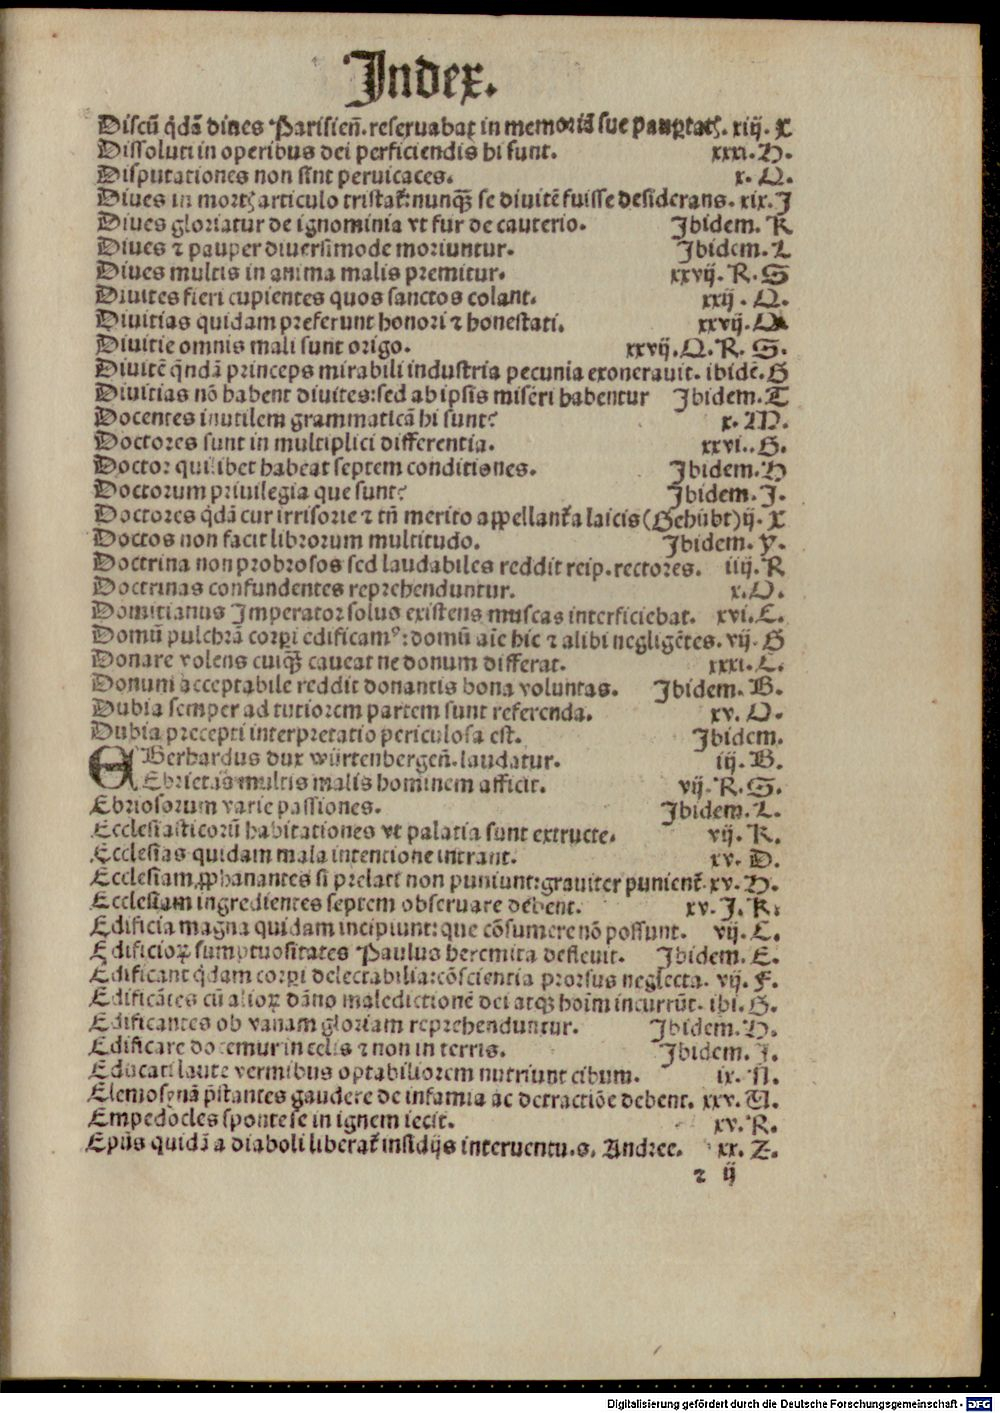 Index.
Discū q̄dā diues Parisieñ. reseruabat in memoriā sue paup̲tatꝭ. xiij. X
Dissoluti in operibus dei perficiendis hi sunt. xxxi. H.
Disputationes non sint peruicaces. x. O.
Diues in mortꝭ articulo tristat᷑: nunqȝ̄ se diuitē fuisse desiderans. xix. J
Diues gloriatur de ignominia vt fur de cauterio. Ibidem. K
Diues ⁊ pauper diuersimode moriuntur. Ibidem. L
Diues multis in anima malis premitur. xxvij. R. S
Diuites fieri cupientes quos sanctos colant. xxij. Q.
Diuitias quidam preferunt honori ⁊ honestati. xxvij.
Diuitie omnis mali sunt origo. xxvij. Q. R. S.
Diuitē q̄ndā princeps mirabili industria pecunia exonerauit. ibidē. S
Diuitias nō habent diuites: sed ab ipsis misēri habentur Ibidem. T
Docentes inutilem grammaticā hi sunt? x. M.
Doctores sunt in multiplici differentia. xxvi.. G.
Doctor quilibet habeat septem conditiones. Ibidem. H
Doctorum priuilegia que sunt? Ibidem. J.
Doctores q̄dā cur irrisorie ⁊ tñ merito appellant᷑ a laicis (Gehübt) ij. X
Doctos non facit librorum multitudo. Ibidem. Y.
Doctrina non probrosos sed laudabiles reddit reip. rectores. iiij. R
Doctrinas confundentes reprehenduntur. x. O.
Domitianus Imperator solus existens muscas interficiebat. xvi. C.
Domū pulchrā corp̲i edificamꝰ: domū aīe hic ⁊ alibi negligētes. vij. G
Donare volens cuiqȝ̄ caueat ne donum differat. xxxi. C.
Donum acceptabile reddit donantis bona voluntas. Ibidem. B.
Dubia semper ad tutiorem partem sunt referenda. xv. O.
Dubia precepti interpretatio periculosa est. Ibidem.
EBerhardus dux würtenbergeñ. laudatur. iij. B.
Ebrietas multis malis hominem afficit. vij. R. S.
Ebriosorum varie passiones. Ibidem. L.
Ecclesiasticorū habitationes vt palatia sunt extructe. vij. K.
Ecclesias quidam mala intentione intrant. xv. D.
Ecclesiam ꝓphanantes si prelati non puniunt: grauiter punient᷑. xv. H.
Ecclesiam ingredientes septem obseruare debent. xv. J. K.
Edificia magna quidam incipiunt: que cōsumere nō possunt. vij. C.
Edificioꝝ sumptuositates Paulus heremita defleuit. Ibidem. E.
Edificant q̄dam corp̲i delectabilia: cōscientia prorsus neglecta. vij. F.
Edificātes cū alioꝝ dāno maledictionē dei atqȝ hoīm incurrūt. ibi. G.
Edificantes ob vanam gloriam reprehenduntur. Ibidem. H.
Edificare docemur in celis ⁊ non in terris. Ibidem. J.
Educati laute vermibus optabiliorem nutriunt cibum. ix. N.
Elemosynā p̄stantes gaudere de infamia ac detractiōe debent. xxv. U.
Empedocles sponte se in ignem iecit. xv. R.
Ep̄us quidā a diaboli liberat᷑ insidijs interuentu. s. Andree. xx. Z.
⁊ ij
Digitalisierung gefördert durch die Deutsche Forschungsgemeinschaft - DFG